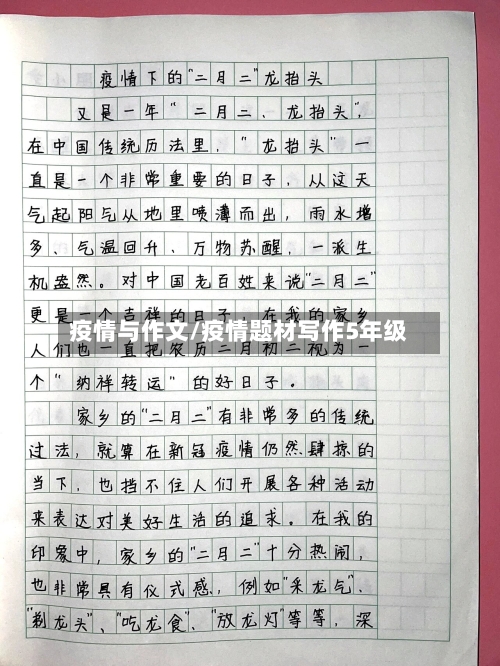 疫情下的"二月二"龙抬头
又是一年"二月二、龙抬头",
在中国传统历法里,"龙抬头"一
直是一个非常重要的日子,从这天
气起阳气从地里喷薄而出,雨水增
多、气温回升、万物苏醒,一派生
机盎然。对中国老百姓来说"二月二"
更是一个吉祥的日子,在我的家乡
疫情与作文/疫情题材写作5年级
人们也一直把农历二月初二视为一
个"纳祥转运"的好日子。
家乡的"二月二"有非常多的传统
过法,就算在新冠疫情仍然肆掠的
当下,也挡不住人们开展各种活动
来表达对美好生活的追求。在我的
印象中,家乡的"二月二"十分热闹,
也非常具有仪式感,例如"采龙气"、
"剃龙头"、"吃龙食"、"放龙灯"等等,深